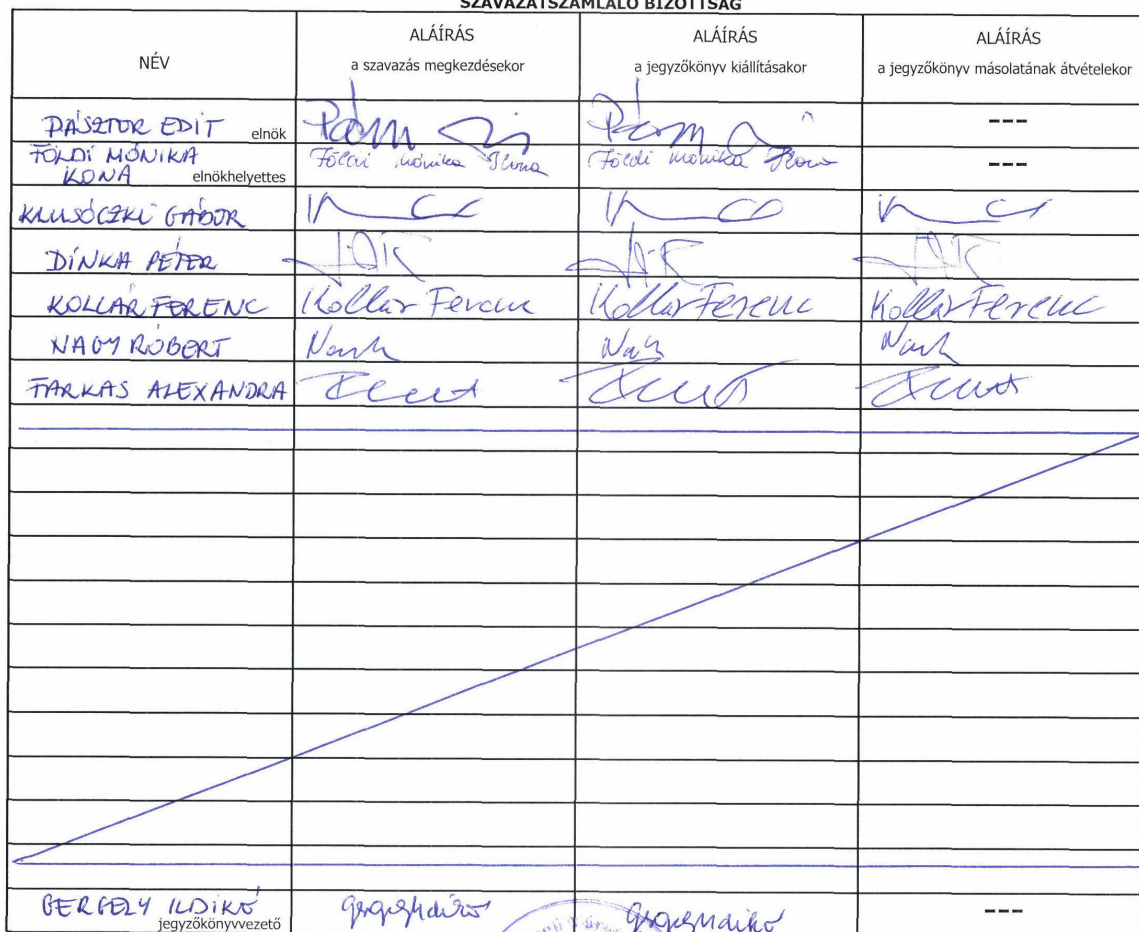 SZAVAZATSZÁMLÁLÓ BIZOTTSÁG
NÉV
ALÁÍRÁS
a szavazás megkezdésekor
ALÁÍRÁS
a jegyzőkönyv kiállításakor
ALÁÍRÁS
a jegyzőkönyv másolatának átvételekor
PÁSZTOR EDIT elnök ---
FÖLDI MÓNIKA
ILONA elnökhelyettes Földi Mónika Ilona Földi Mónika Ilona ---
GÁBOR
DINKA PÉTER
KOLLÁR FERENC Kollár Ferenc Kollár Ferenc Kollár Ferenc
NAGY RÓBERT
FARKAS ALEXANDRA
GERGELY ILDIKÓ
jegyzőkönyvvezető ---